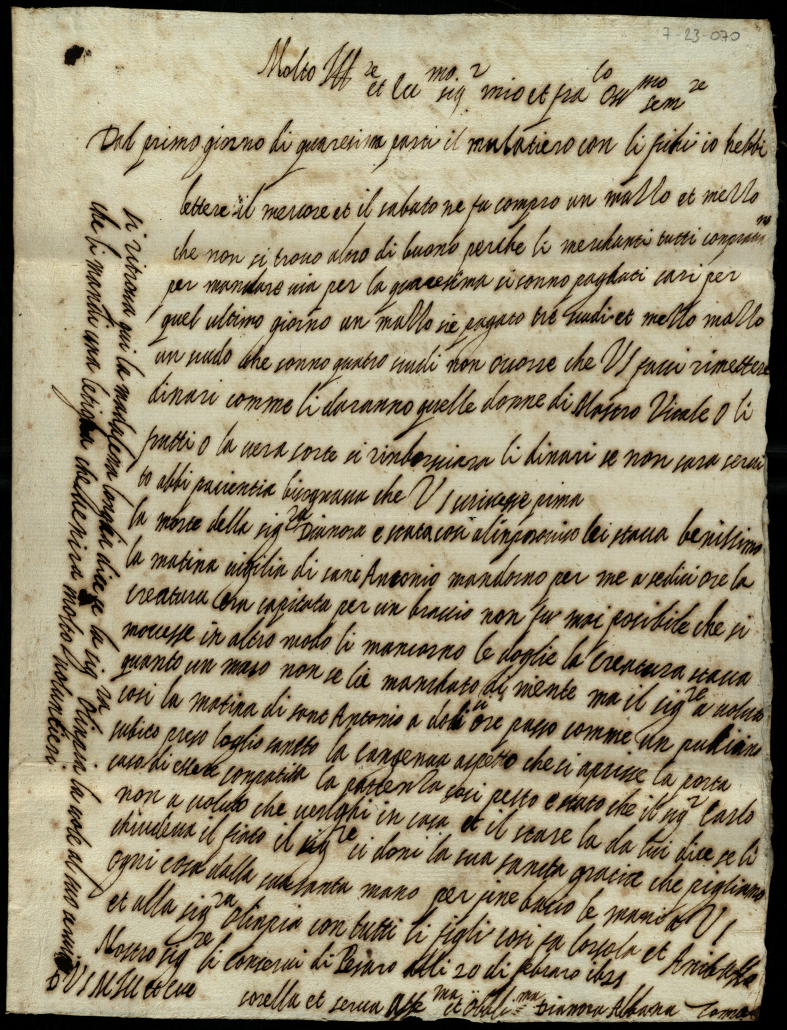 7-23-070
Molto Ill re et Ecc mo sig r mio et fra lo oss mo sem re
Dal primo giorno di quaresima parti il mulatiero con li fichi io hebbi
lettere il mercore et il sabato ne fu compro un mazzo et mezzo
che non si trovo altro di buono perche li merchanti tutti
per mandare via per la quaresima si sonno paghati cari per
quel ultimo giorno un mazzo sie pagato tre scudi et mezzo mazzo
un scudo che sonno quatro scudi non ocorre che VS facci rimettere
dinari comme li daranno quelle donne di Mastro Vitale o li
frutti o la vera sorte si rinborsiara li dinari se non sara servi
to abbi pacientia bisgnava che VS scrivesse prima
la morte della sig ra Dianora e stata cosi al inproviso lei stava benissimo
la matina vigilia di sant Antonio mandorno per me a sedici ore la
creatura era capitata per un braccio non fu mai posibile che si
movesse in altro modo li mancorno le doglie la creatura stava
quanto un maso non se lie manchato di niente ma il sig re a voluto
cosi la matina di sant Antonio a dodici ore passo comme un pulcino
subito preso loglio santto la aspetto che si aprisse la porta
caso di essere conpatita la partenza cosi presto e stato che il sig r Carlo
non a voluto che venghi in casa et il stare la da lui dice se li
chiudeva il fiato il sig re ci doni la sua santa gracia che pigliamo
ogni cosa dalla sua santa mano per fine bacio le mani a VS
et alla sig ra Olinpia con tutti li figli cosi fa Lorsola et Anibale
Nostro sig re li conservi di Pesaro alli 20 di febraro 1621
D VS M Ill et Ecc
sorella et serva aff ma et obli ma Dianora Albana
si ritrova qui la dice se la sig ra Olinpia la vole al suo servitio
che li mandi una letigha che la venira molto voluntieri